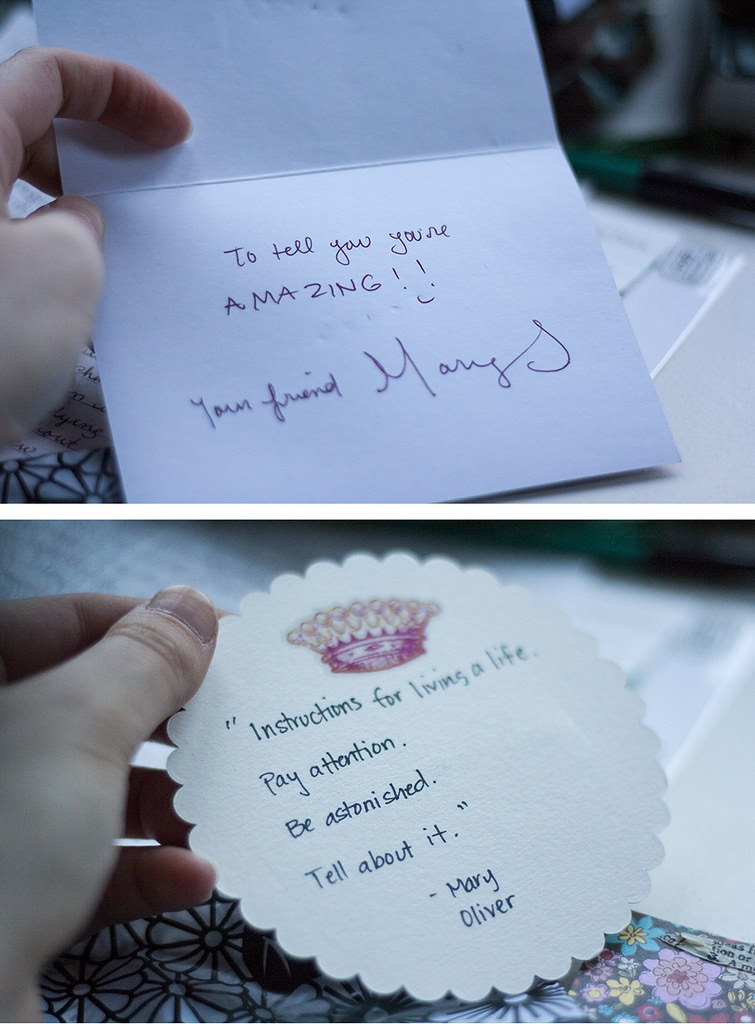 To tell you you're
AMAZING!!
Your friend Mary S
"Instructions for living a life.
Pay attention.
Be astonished.
Tell about it."
- Mary
Oliver